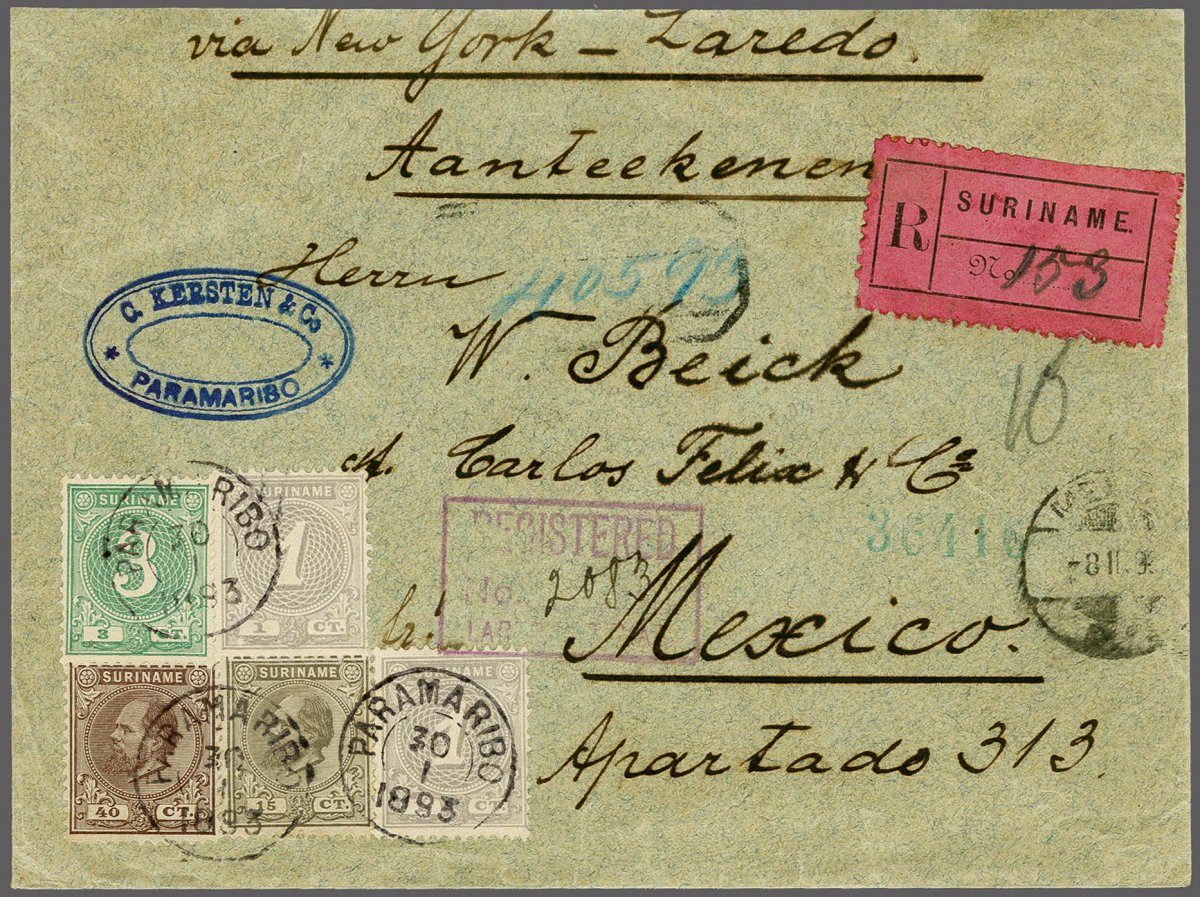 via New York – Laredo.
Aanteekenen
R
SURINAME.
No 153
Herrn
40593
C. KERSTEN & Co
* *
PARAMARIBO
W. Beick
16
Carlos Felix & Co
REGISTERED
No. 2083
36416
8 II. 9
Mexico.
Apartado 313.
SURINAME
3
3 CT.
SURINAME
1
1 CT.
PARAMARIBO
30
1893
SURINAME
40 CT.
SURINAME
15 CT.
PARAMARIBO
30
1
1893
1
PARAMARIBO
30
1
1893